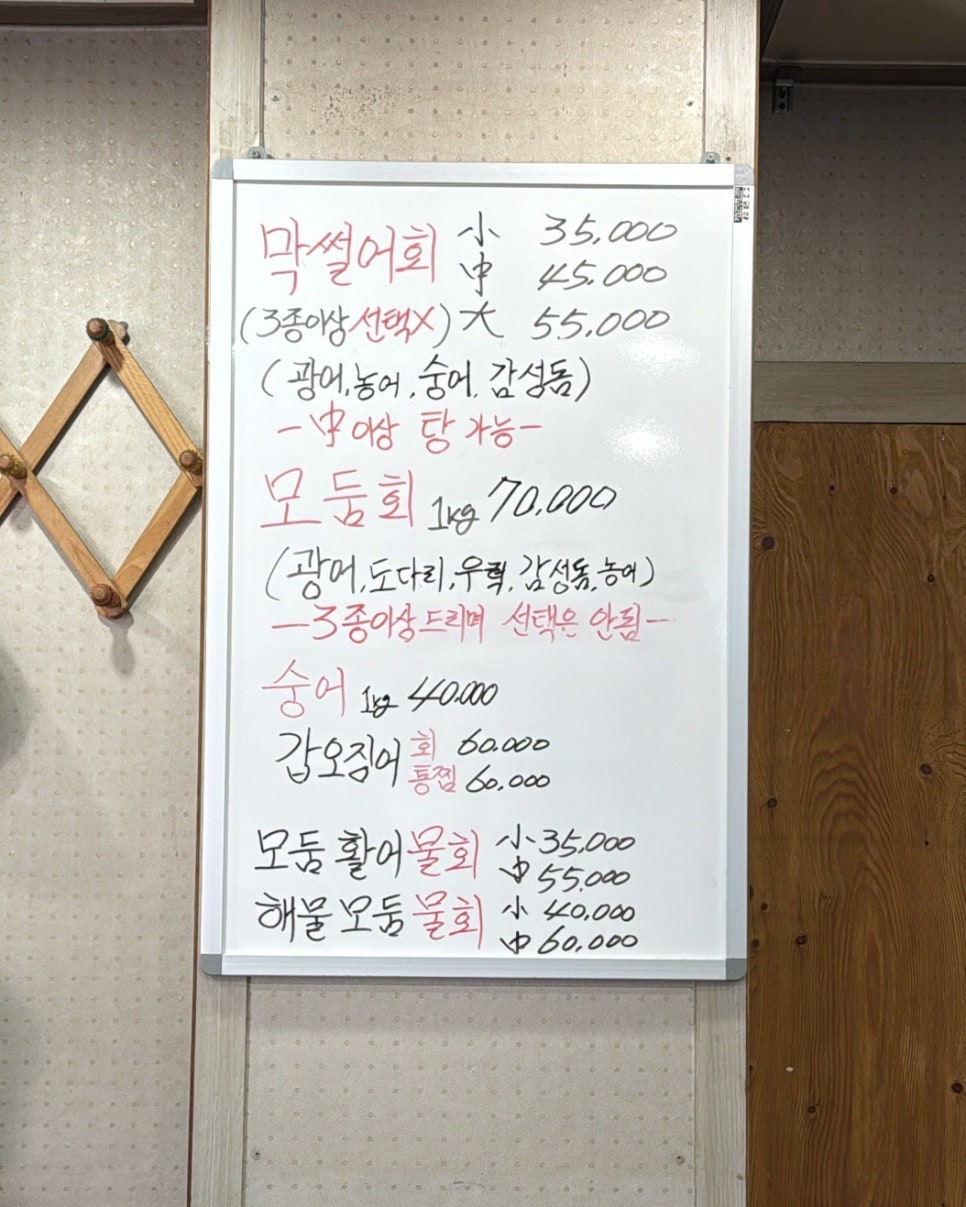 막썰어회 小 35,000
中 45,000
(3종이상 선택X) 大 55,000
(광어,농어,숭어,감성돔)
-中이상 탕 가능-
모둠회 1kg 70,000
(광어,도다리,우럭,감성돔,농어)
-3종이상드리며 선택은 안됨-
숭어 1kg 40,000
갑오징어 회 60,000
통찜 60,000
모둠 활어물회 小 35,000
中 55,000
해물모둠물회 小 40,000
中 60,000